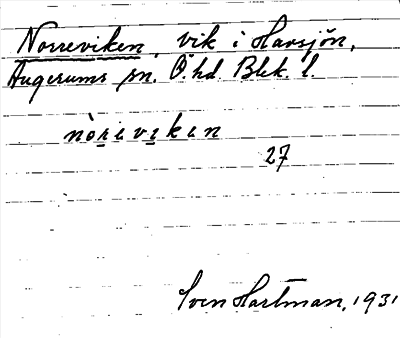 Norreviken, vik i Harsjön,
Augerums sn. Ö. hd. Blek. l.
nòriviken
27
Sven Hartman, 1931